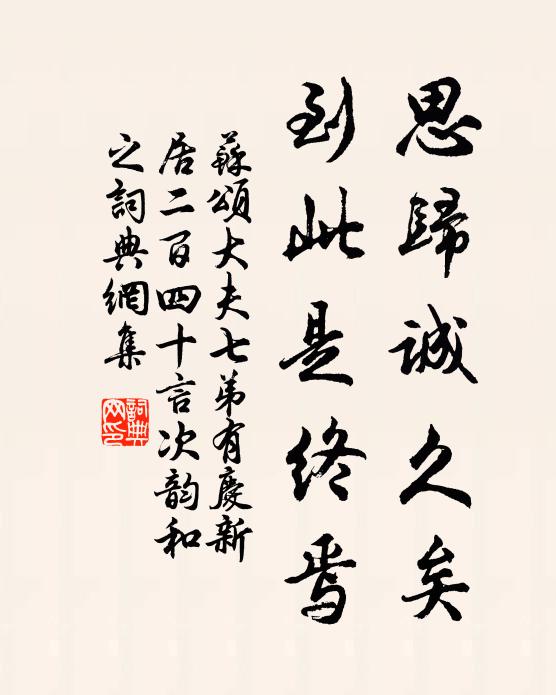 思歸誠久矣
到此是終焉
蘇頌大夫七弟有慶新
居二百四十言次韵和
之詞典網集
詞典
网印